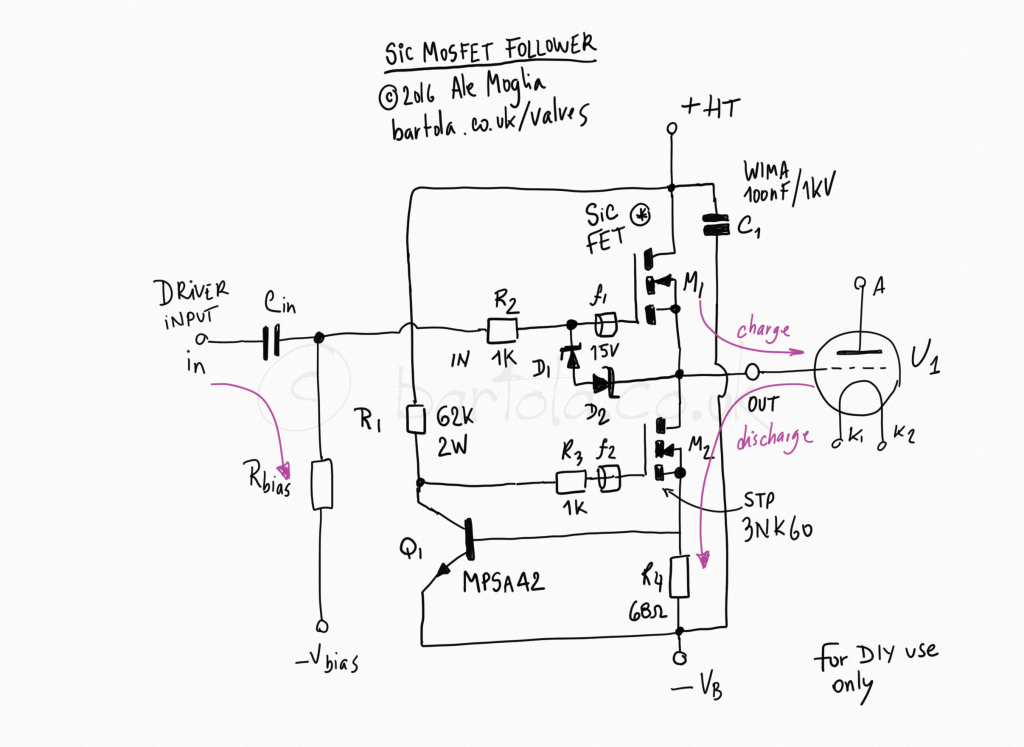 SiC MOSFET FOLLOWER
©2016 Ale Moglia
bartola.co.uk/valves
+HT
WIMA
100nF/1KV
C1
SiC ✱
FET
M1
DRiVER
iNPUT
in
Cin
R2
1K
IN
f1
15V
D1
D2
charge
A
U1
OUT
K1
K2
discharge
© bartola.co.uk
R1
62K
2W
R3
1K
f2
M2
STP
3NK60
Rbias
Q1
MPSA42
R4
68Ω
-Vbias
-VB
for DIY use
only